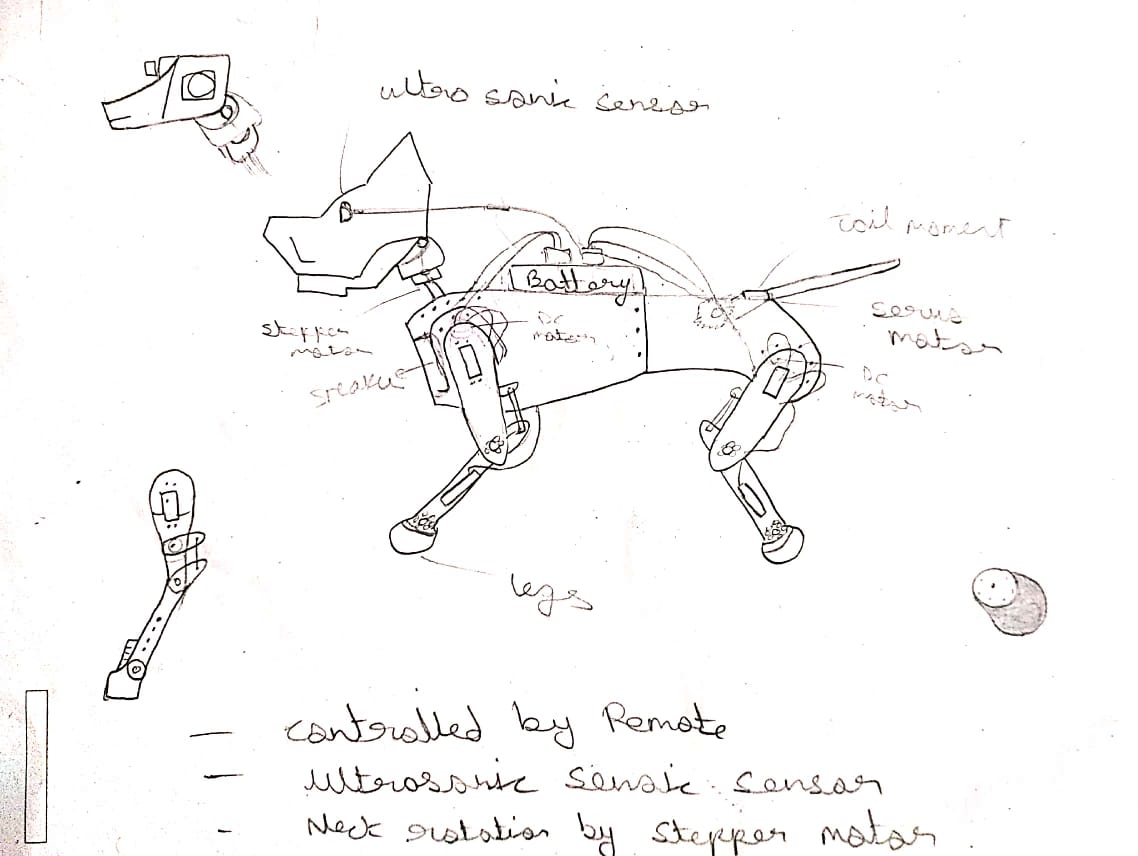 ultro sonic sensor
tail moment
Battery
servo
motor
stepper
motor
DC
motor
speaker
DC
motor
legs
— controlled by Remote
— Ultrosonic Senoic sensor
- Neck rotation by stepper motor.